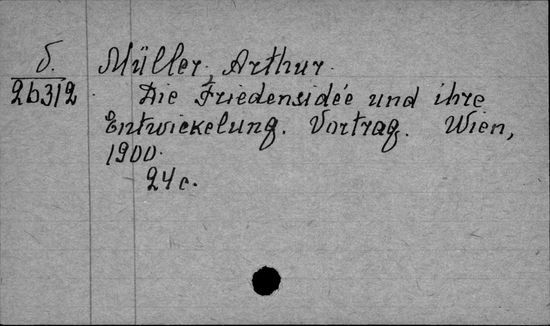 б.
26312
Müller, Arthur.
Die Friedensidée und ihre
Entwickelung. Vortrag. Wien,
1900.
24 c.